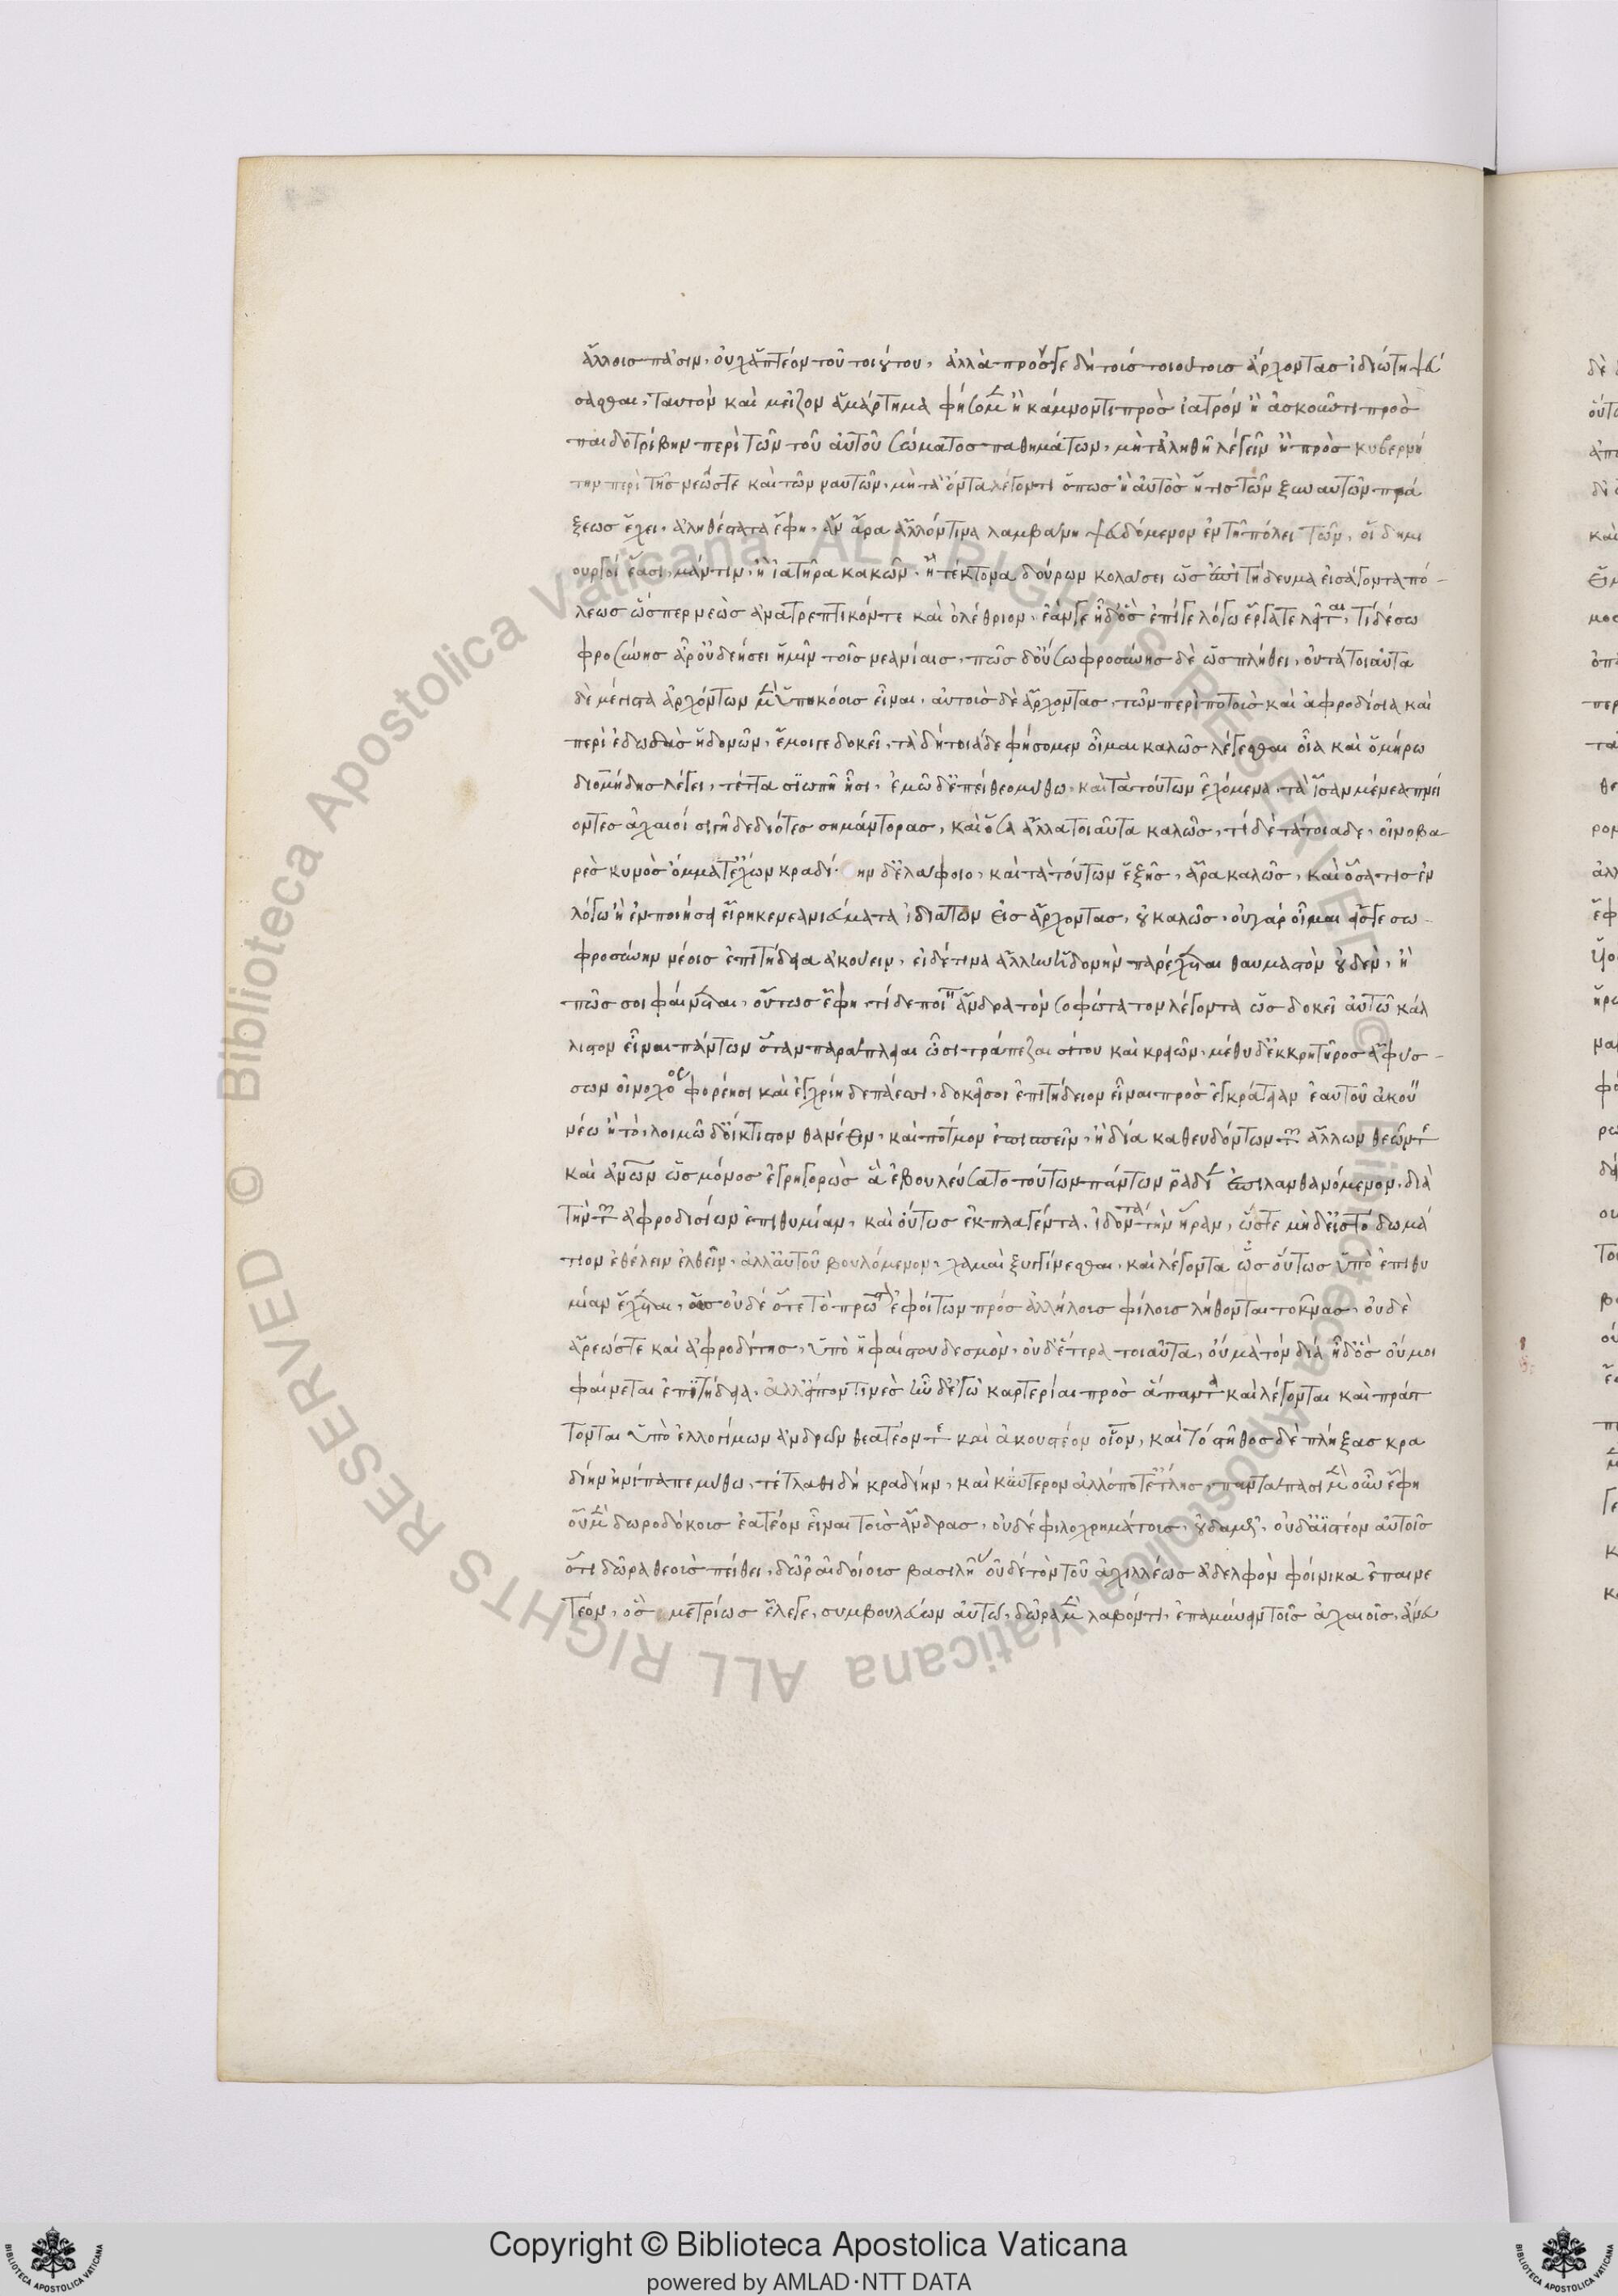 ἄλλοισ πᾶσιν. οὐχ ἁπτέον τοῦ τοιούτου, ἀλλὰ πρόσγε δὴ τοὺσ τοιούτουσ ἄρχοντασ ἰδιώτῃ ψεύ
σασθαι, ταυτὸν καὶ μεῖζον ἁμάρτημα φήσομεν ἢ κάμνοντι πρὸσ ἰατρὸν ἢ ἀσκοῦντι πρὸσ
παιδοτρίβην περὶ τῶν τοῦ αὐτοῦ σώματοσ παθημάτων, μὴ τἀληθῆ λέγειν ἢ πρὸσ κυβερνή
την περὶ τῆσ νεώσ τε καὶ τῶν ναυτῶν, μὴ τὰ ὄντα λέγοντι ὅπωσ ἢ αὐτὸσ ἤ τισ τῶν ξυναυτῶν πρά
ξεωσ ἔχει. ἀληθέστατα ἔφη. ἂν ἄρα ἄλλόν τινα λαμβάνῃ ψευδόμενον ἐν τῇ πόλει τῶν, οἳ δημι
ουργοὶ ἔασι, μάντιν, ἢ ἰατῆρα κακῶν, ἢ τέκτονα δούρων κολάσει ὡσ ἐπιτήδευμα εἰσάγοντα πό-
λεωσ ὥσπερ νεὼσ ἀνατρεπτικόν τε καὶ ὀλέθριον. ἐάν γε ἦ δ' ὃσ ἐπί γε λόγω ἔργα τελῆται, τί δέ σω
φροσύνησ ἆρ' οὐ δεήσει ἡμῖν τοῖσ νεανίαισ. πῶσ δ' οὔ σωφροσύνησ δὲ ὡσ πλήθει, οὐ τὰ τοιαῦτα
δὲ μέγιστα ἀρχόντων μὲν ὑπηκόουσ εἶναι, αὐτοὺσ δὲ ἄρχοντασ, τῶν περὶ πότουσ καὶ ἀφροδίσια καὶ
περὶ ἐδωδὰσ ἡδονῶν, ἔμοιγε δοκεῖ, τὰ δὴ τοιάδε φήσομεν οἶμαι καλῶσ λέγεσθαι οἷα καὶ ὁμήρω
διομήδησ λέγει, τέττα σιωπῇ ἧσο, ἐμῶ δ' ἐπιπείθεο μύθω, καὶ τὰ τούτων ἐχόμενα, τὰ ἴσαν μένεα πνεί
οντεσ ἀχαιοί σιγῇ δεδιότεσ σημάντορασ, καὶ ὅσα ἄλλα τοιαῦτα καλῶσ, τί δὲ τὰ τοιάδε, οἰνοβα
ρὲσ κυνὸσ ὄμματ' ἔχων κραδίην δ' ἐλάφοιο, καὶ τὰ τούτων ἑξῆσ, ἆρα καλῶσ, καὶ ὅσα τισ ἐν
λόγω ἢ ἐν ποιήσει εἴρηκε νεανιεύματα ἰδιωτῶν εἰσ ἄρχοντασ, οὐ καλῶσ. οὐ γάρ οἶμαι εἴσ γε σω-
φροσύνην νέοισ ἐπιτήδεια ἀκούειν, εἰ δέ τινα ἄλλην ἡδονὴν παρέχεται θαυμαστὸν οὐδὲν, ἢ
πῶσ σοι φαίνεται, οὕτωσ ἔφη, τί δε ποιεῖν ἄνδρα τὸν σοφώτατον λέγοντα ὡσ δοκεῖ αὐτῶ κάλ
λιστον εἶναι πάντων ὅταν παράπλειαι ὦσι τράπεζαι σίτου καὶ κρεῶν, μέθυ δ' ἐκ κρητῆροσ ἀφύσ-
σων οἰνοχόοσ φορέῃσι καὶ ἐγχείῃ δεπάεσσι, δοκεῖ σοι ἐπιτήδειον εἶναι πρὸσ ἐγκράτειαν ἑαυτοῦ ἀκούειν
νέω ἢ τὸ, λιμῶ δ' οἴκτιστον θανέειν, καὶ πότμον ἐπισπεῖν, ἢ δία καθευδόντων τῶν ἄλλων θεῶν τε
καὶ ἀνθρώπων ὡσ μόνοσ ἐγρηγορὼσ ἃ ἐβουλεύσατο τούτων πάντων ῥαδίωσ ἐπιλανθανόμενον, διὰ
τὴν τῶν ἀφροδισίων ἐπιθυμίαν, καὶ οὕτωσ ἐκπλαγέντα, ἰδόντα τὴν ἥραν, ὥστε μηδ' εἰσ τό δωμά
τιον ἐθέλειν ἐλθεῖν, ἀλλ' αὐτοῦ βουλόμενον, χαμαὶ ξυγγίνεσθαι, καὶ λέγοντα ὡσ οὕτωσ ὑπὸ ἐπιθυ
μίαν ἔχεται, ὡσ οὐδέ ὅτε τὸ πρῶτον ἐφοίτων πρόσ ἀλλήλουσ φίλουσ λήθονται τοκῆασ, οὐδὲ
ἄρεώσ τε καὶ ἀφροδίτησ, ὑπὸ ἡφαίστου δεσμὸν, οὐδ' ἕτερα τοιαῦτα, οὐ μὰ τὸν δία ἦ δ' ὃσ οὔ μοι
φαίνεται ἐπιτήδεια, ἀλλ' εἴ πού τινεσ ἦν δ' ἐγὼ καρτερίαι πρὸσ ἅπαντα καὶ λέγονται καὶ πράτ
τονται ὑπὸ ἐλλογίμων ἀνδρῶν θεατέον τε καὶ ἀκουστέον οἷον, καὶ τό στῆθοσ δὲ πλήξασ κρα
δίην ἠνίπαπε μύθω, τέτλαθι δή κραδίην, καὶ κύντερον ἄλλό ποτ' ἔτλησ, παντάπασι μὲν οὖν ἔφη
οὐ μὲν δωροδόκουσ ἐατέον εἶναι τοὺσ ἄνδρασ, οὐδέ φιλοχρημάτουσ, οὐδαμῶσ, οὐδ' ἀϊστέον αὐτοῖσ
ὅτι δῶρα θεοὺσ πείθει, δῶρ' αἰδοίουσ βασιλῆασ οὐδέ τὸν τοῦ ἀχιλλέωσ ἀδελφὸν φοίνικα ἐπαινε
τέον, ὃσ μετρίωσ ἔλεγε, συμβουλεύων αὐτῶ, δῶρα μὲν λαβόντι, ἐπαμύνειν τοῖσ ἀχαιοῖσ, ἄνευ